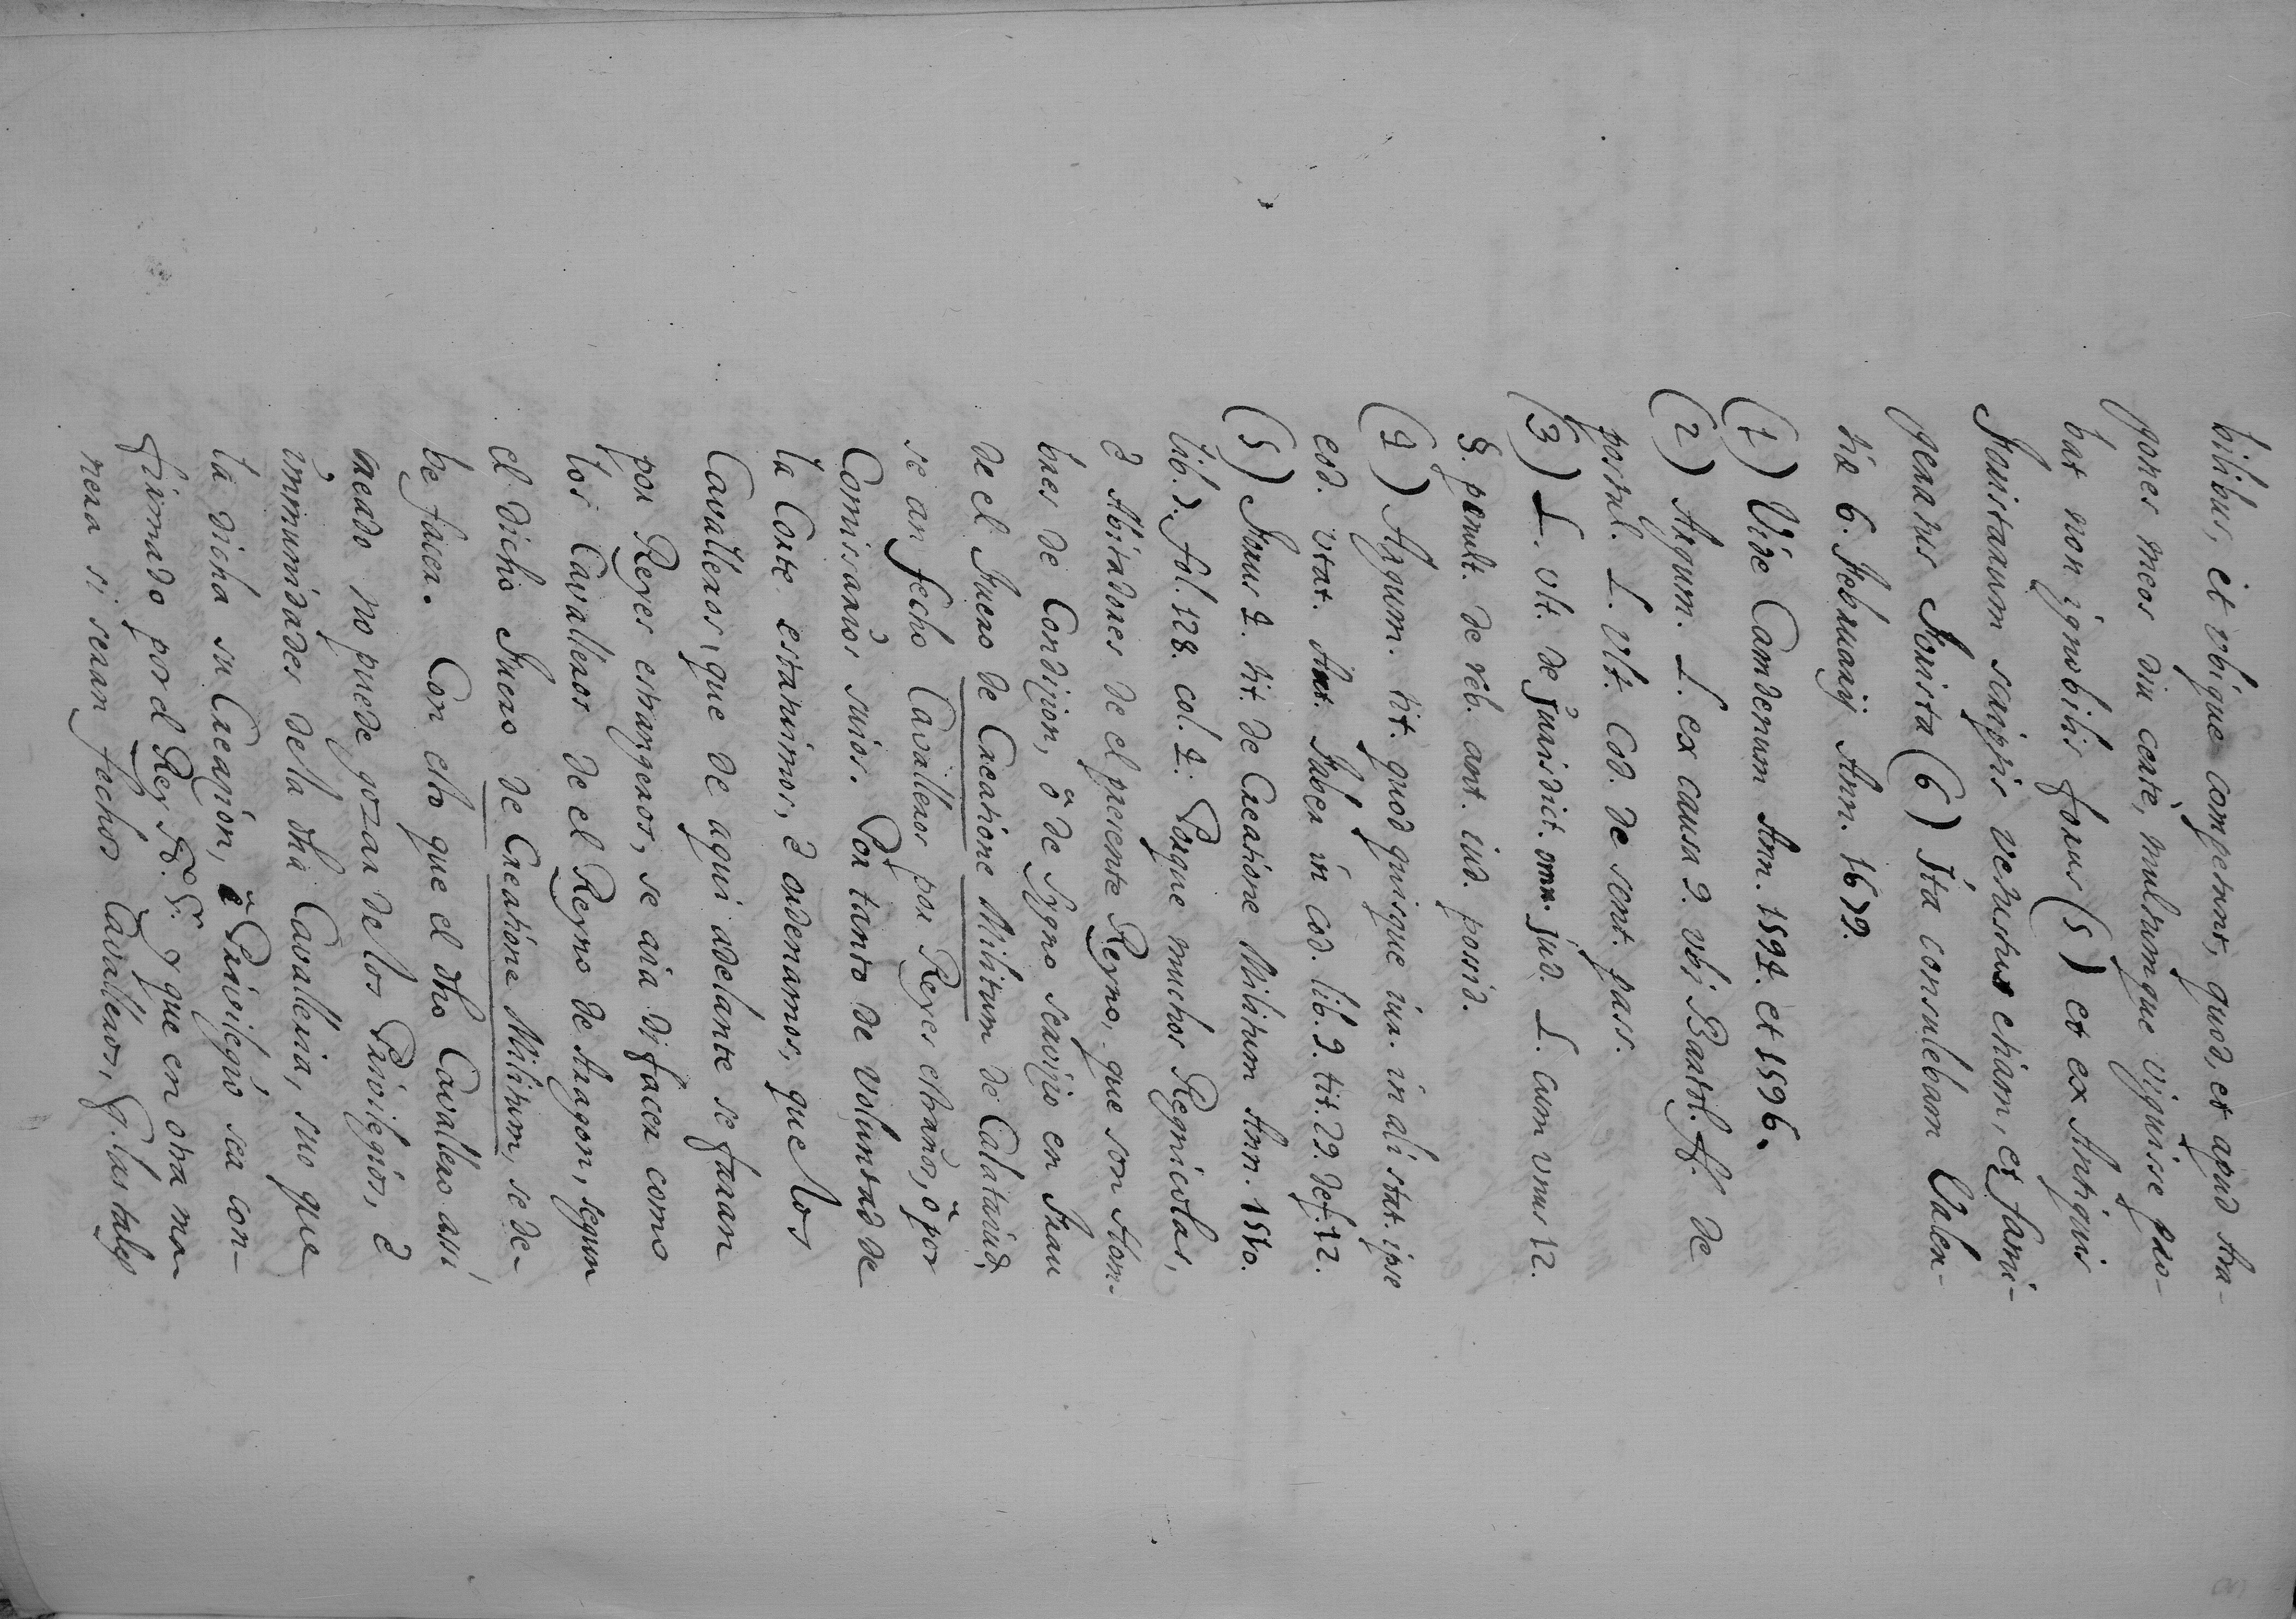 bilibus, et ubique competunt, quod, et apud Ara-
gones meos diu certè, multumque viguisse pro-
bat non ignobilis forus (5) et ex Antiquis
Foristarum scriptis vetustus etiam, et fami-
geratus Forista (6) Ita consulebam Valen-
tiæ 6. Februarij Ann. 1679.
(1) Vide Camdenum Ann. 1594. et 1596.
(2) Argum. L. ex causa 9. vbi Bartol. ff. de
postul. L. Vlt. Cod. de sent. pass.
(3) L. vlt. de jurisdict. omn. jud. L. cum vnus 12.
§. penult. de reb. aut. iud. possid.
(4) Argum. tit. quod quisque iur. in ali stat. ipse
eod. vtat. Ant. Faber in Cod. lib. 9. tit. 29. def. 12.
(5) Forus 2. tit. de Creatione Militum Ann. 1510.
lib. 7. fol. 128. col. 2. Porque muchos Regnicolas,
è Abitadores de el presente Reyno, que son Hom-
bres de Condizion, ô de Sygno servizio en Frau
de el Fuero de Creatione Militum de Calatayud,
se an fecho Cavalleros por Reyes estraños, ô por
Comisarios suios. Por tanto de voluntad de
la Corte estatuimos, è ordenamos, que los
Cavalleros, que de aqui adelante se faran
por Reyes estrangeros, se aia di facer como
los Cavalleros de el Reyno de Aragon, segun
el dicho Fuero de Creatione Militum, se de-
be facer. Con esto que el dho Cavallero assi
creado no puede gozar de los Privilegios, è
inmunidades de la dha Cavalleria, sino que
la dicha su Creazion, è Privilegio sea con-
firmado por el Rey No. Sr. y que en otra ma
nera si seran fechos Cavalleros, q. las tales